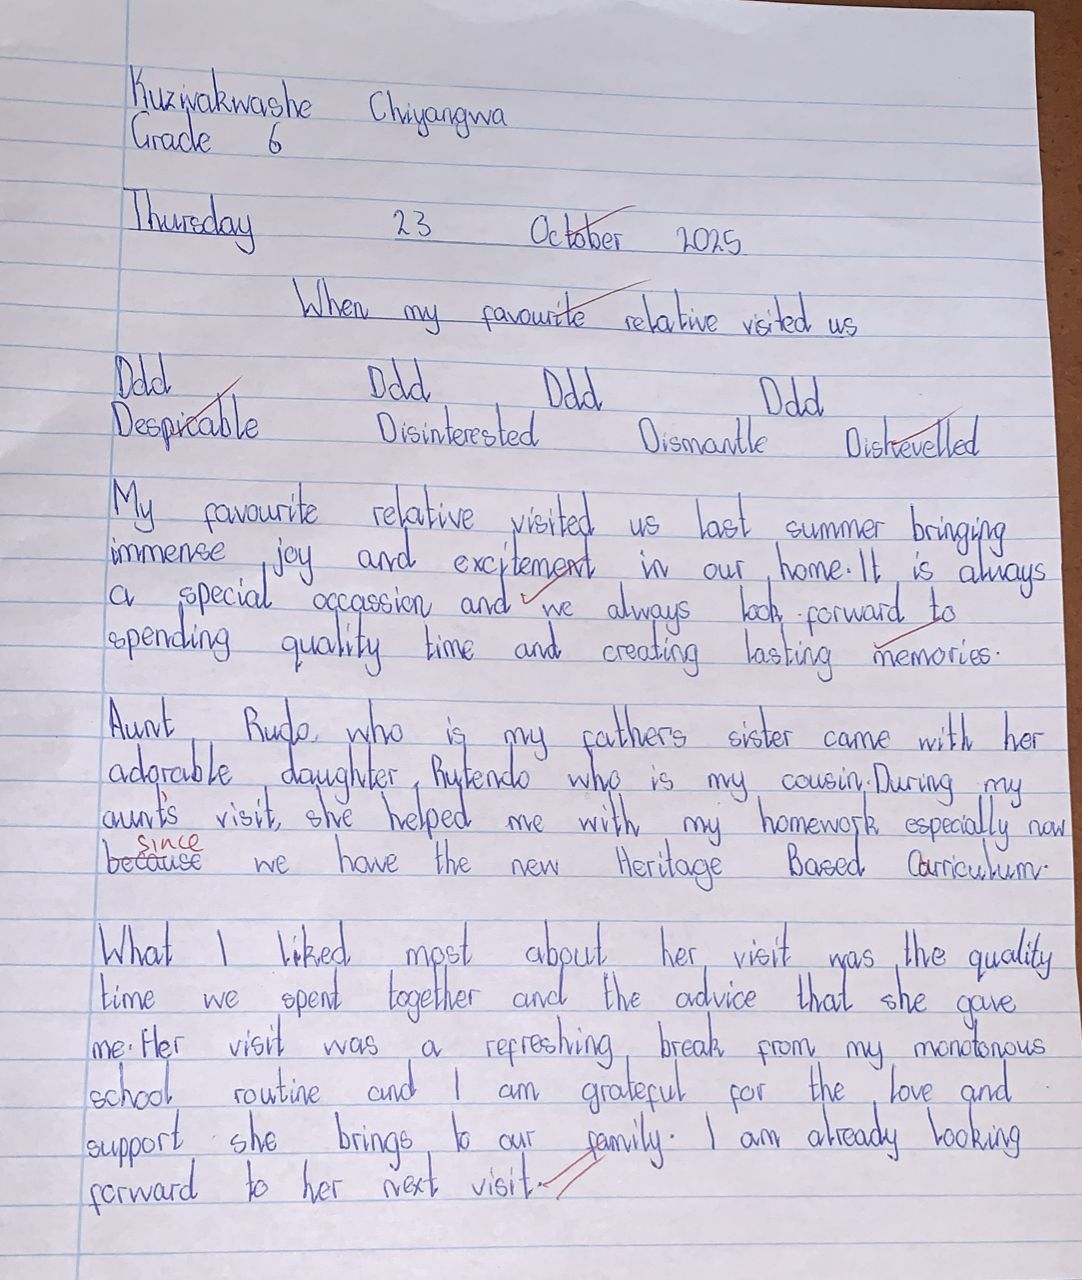 Kuzivakwashe Chiyangwa
Grade 6
Thursday 23 October 2025
When my favourite relative visited us
Ddd Ddd Ddd Ddd
Despicable Disinterested Dismantle Dishevelled
My favourite relative visited us last summer bringing
immense joy and excitement in our home. It is always
a special occassion and we always look forward to
spending quality time and creating lasting memories.
Aunt Rudo, who is my fathers sister came with her
adorable daughter, Rutendo who is my cousin. During my
aunt's visit, she helped me with my homework especially now
since
because we have the new Heritage Based Curriculum.
What I liked most about her visit was the quality
time we spent together and the advice that she gave
me. Her visit was a refreshing break from my monotonous
school routine and I am grateful for the love and
support she brings to our family. I am already looking
forward to her next visit.